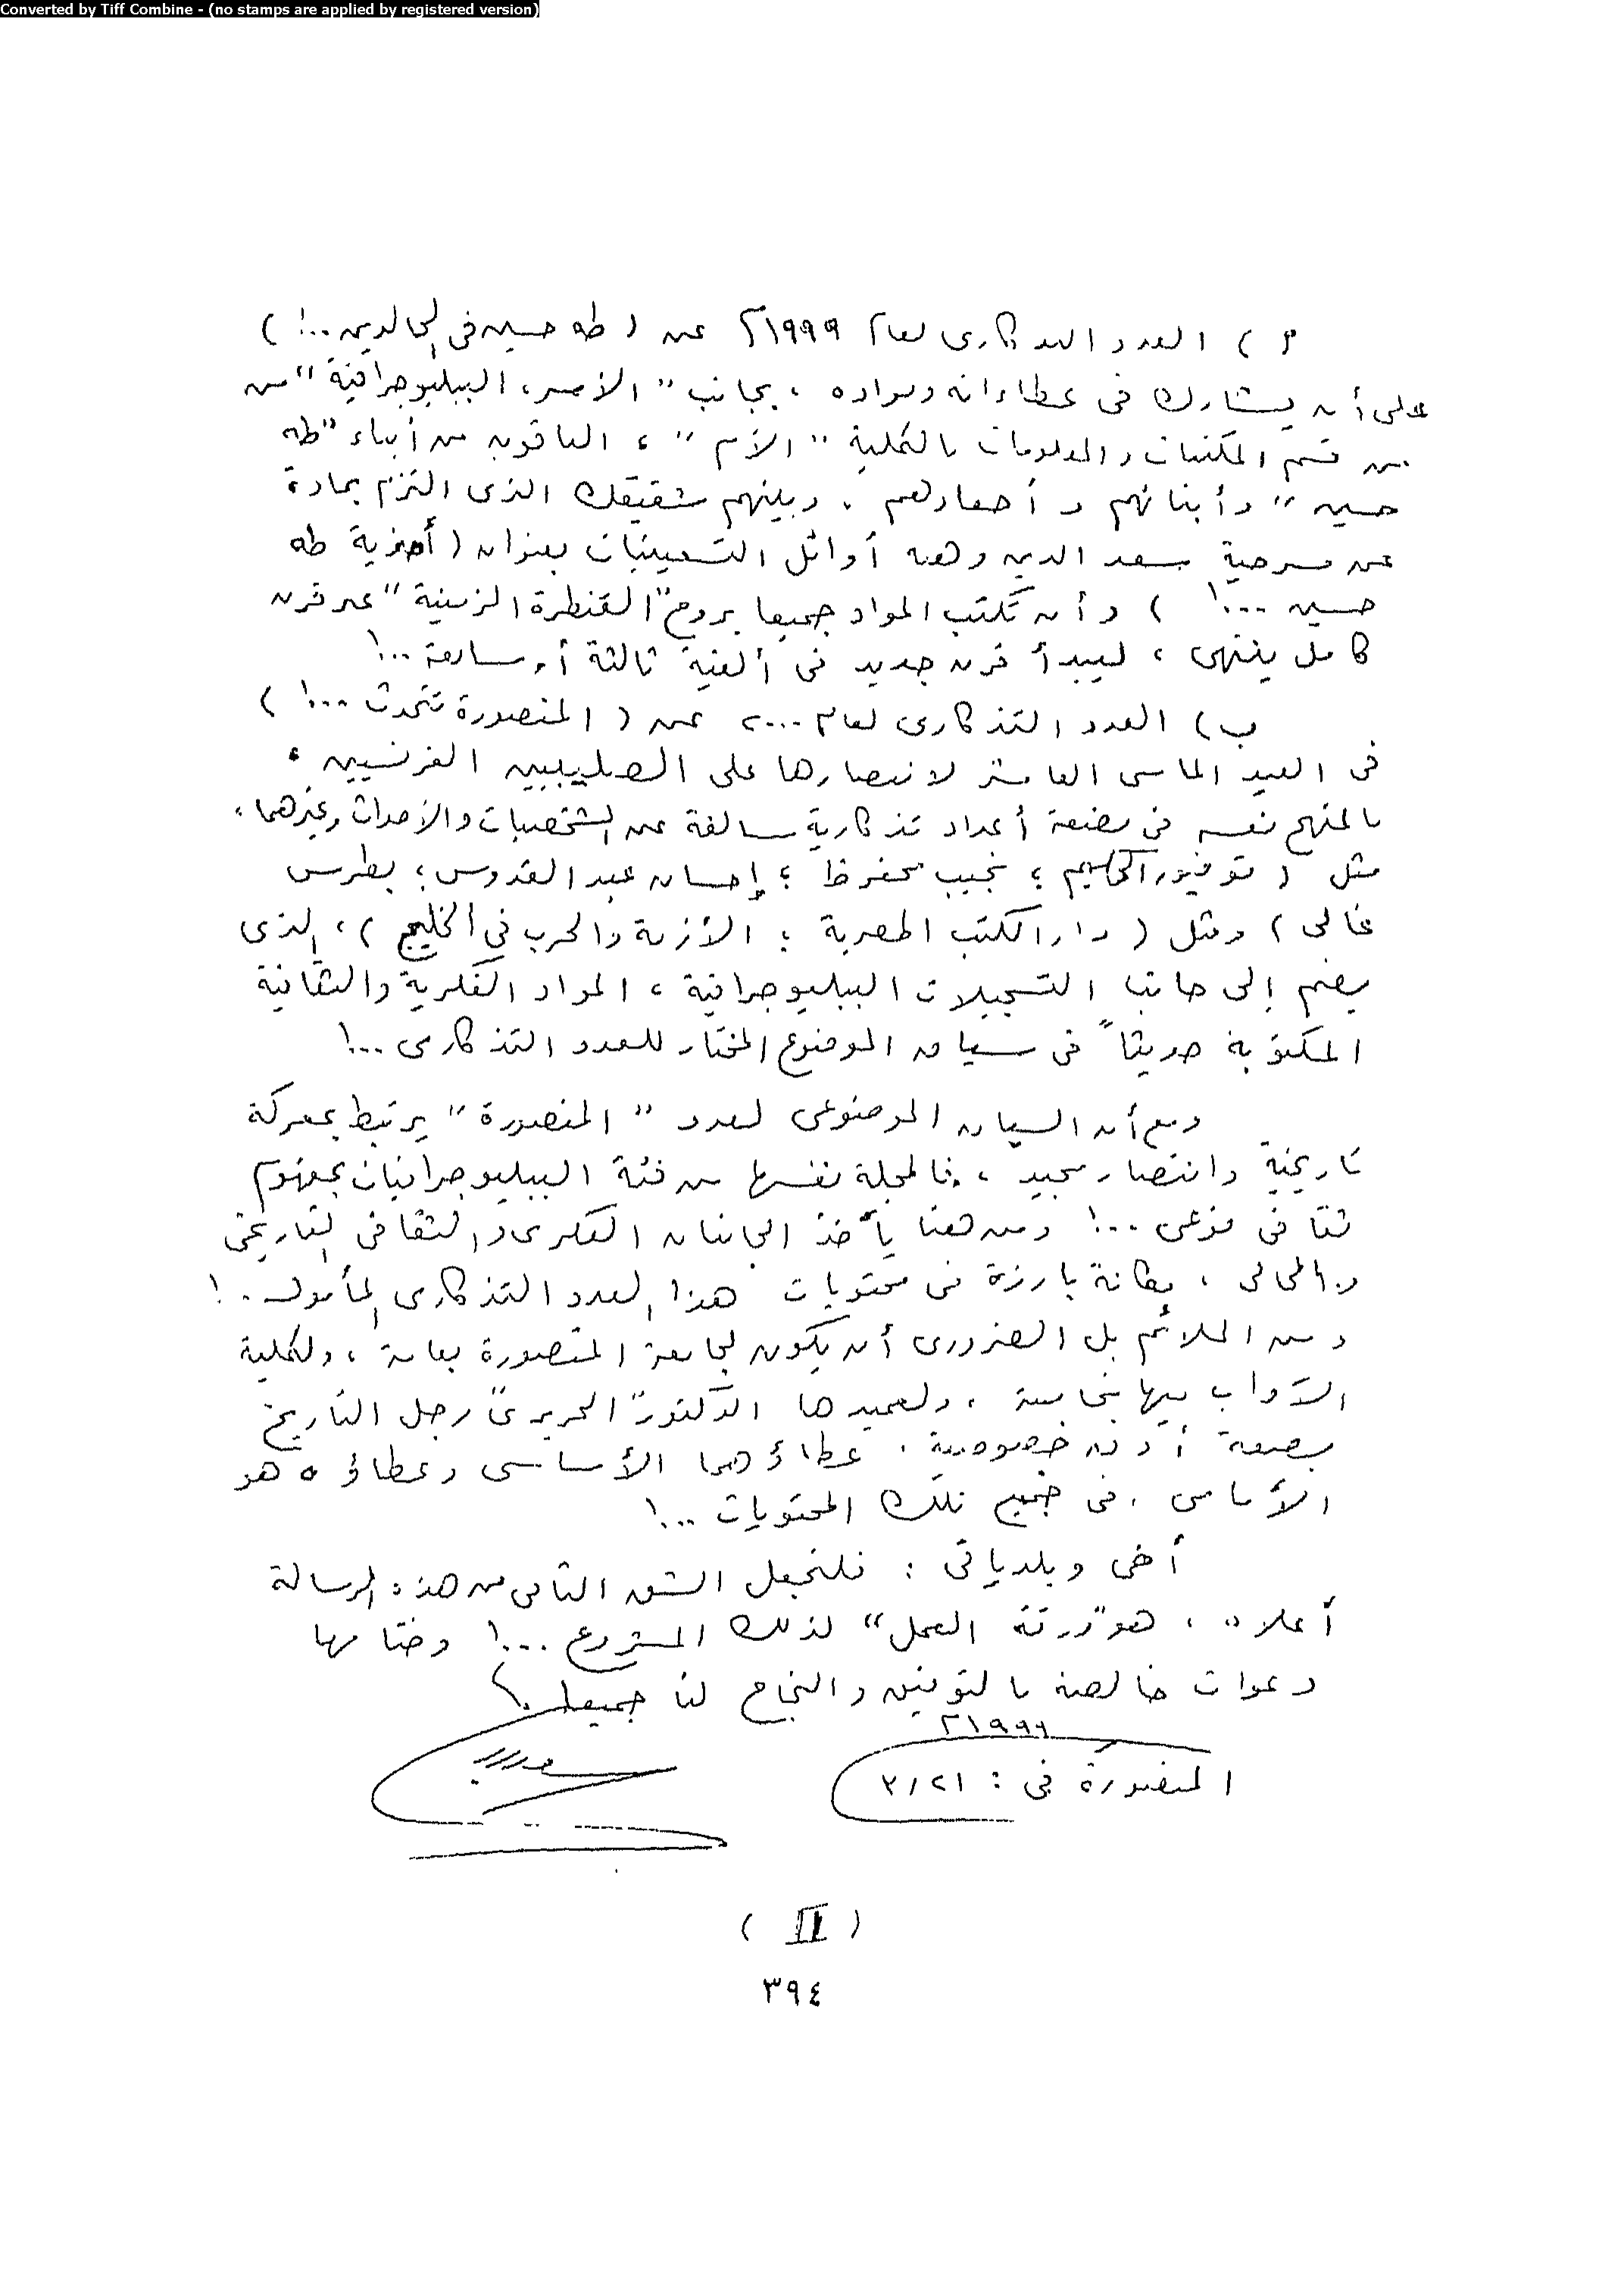 Converted by Tiff Combine - (no stamps are applied by registered version)
أ ) العدد التذكارى لعام ١٩٩٩م عن ( طه حسين فى الخالدين ..! )
على أن يشارك فى عطاءاته ومواده ، بجانب " الأسر، الببليوجرافية " من
من قسم المكتبات والمعلومات بالكلية " الأم " ، الباقون من أبناء " طه
حسين " وأبنائهم وأحفادهم . وبينهم شقيقك الذى التزم بمادة
عن مسرحية سعد الدين وهبه أوائل التسعينيات بعنوان ( أحزية طه
حسين ...! ) وأن تكتب المواد جميعا بروح " القنطرة الزمنية " عبر قرن
كامل ينتهى ، ليبدأ قرن جديد فى ألفية ثالثة أو سابعة ...!
ب) العدد التذكارى لعام ٢٠٠٠ عن ( المنصورة تتحدث ...! )
فى العيد الماسى العاشر لانتصارها على الصليبيين الفرنسيين ،
بالمنهج نفسه فى بضعة أعداد تذكارية سالفة عن الشخصيات والأحداث وغيرهما ،
مثل ( توفيق الحكيم ؛ نجيب محفوظ ؛ إحسان عبد القدوس ؛ بطرس
غالى ) ومثل ( دار الكتب المصرية ؛ الأزمة والحرب في الخليج ) ، الذى
يضم إلى جانب التسجيلات الببليوجرافية ، المواد الفكرية والثقافية
المكتوبة حديثاً فى سياق الموضوع المختار للعدد التذكارى ...!
ومع أن السياق الموضوعى لعدد " المنصورة " يرتبط بمعركة
تاريخية وانتصار مجيد ، فالمجلة نفسها من فئة الببليوجرافيات بمفهوم
ثقافى نوعى ...! ومن هنا يأخذ الجانبان الفكرى والثقافى التاريخى
والحالى ، مكانة بارزة فى محتويات هذا العدد التذكارى المأمول ..!
ومن الملائم بل الضرورى أن يكون لجامعة المنصورة بعامة ، ولكلية
الآداب بها بخاصة ، ولعميدها الدكتور " الحريرى " رجل التاريخ
بصفة أدق خصوصية ، عطاؤهما الأساسى وعطاؤه هو
الأساسى ، فى جميع تلك المحتويات ...!
أخى وبلدياتى : فلنجعل الشق الثانى من هذه الرسالة
أعلاه ، هو "ورقة العمل" لذلك المشروع ...! وختامها
دعوات خالصة بالتوفيق والنجاح لنا جميعا .!
١٩٩٦م
المنصورة فى : ٣/٢١
( II )
٣٩٤